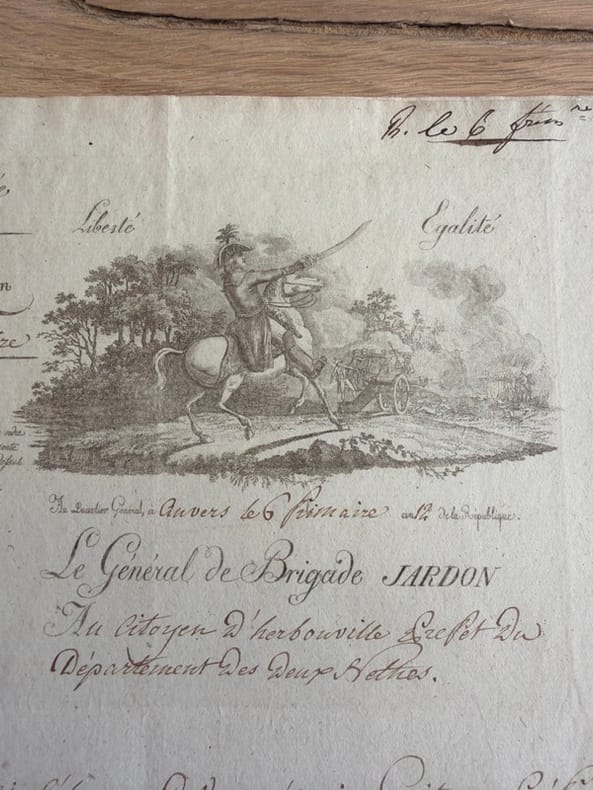 R. le 6 frim re
Liberté Egalité
Au Quartier Général, à Anvers le 6 frimaire an 12 de la République.
Le Général de Brigade JARDON
Au Citoyen D'herbouville Préfet Du
Département des deux Nethes.